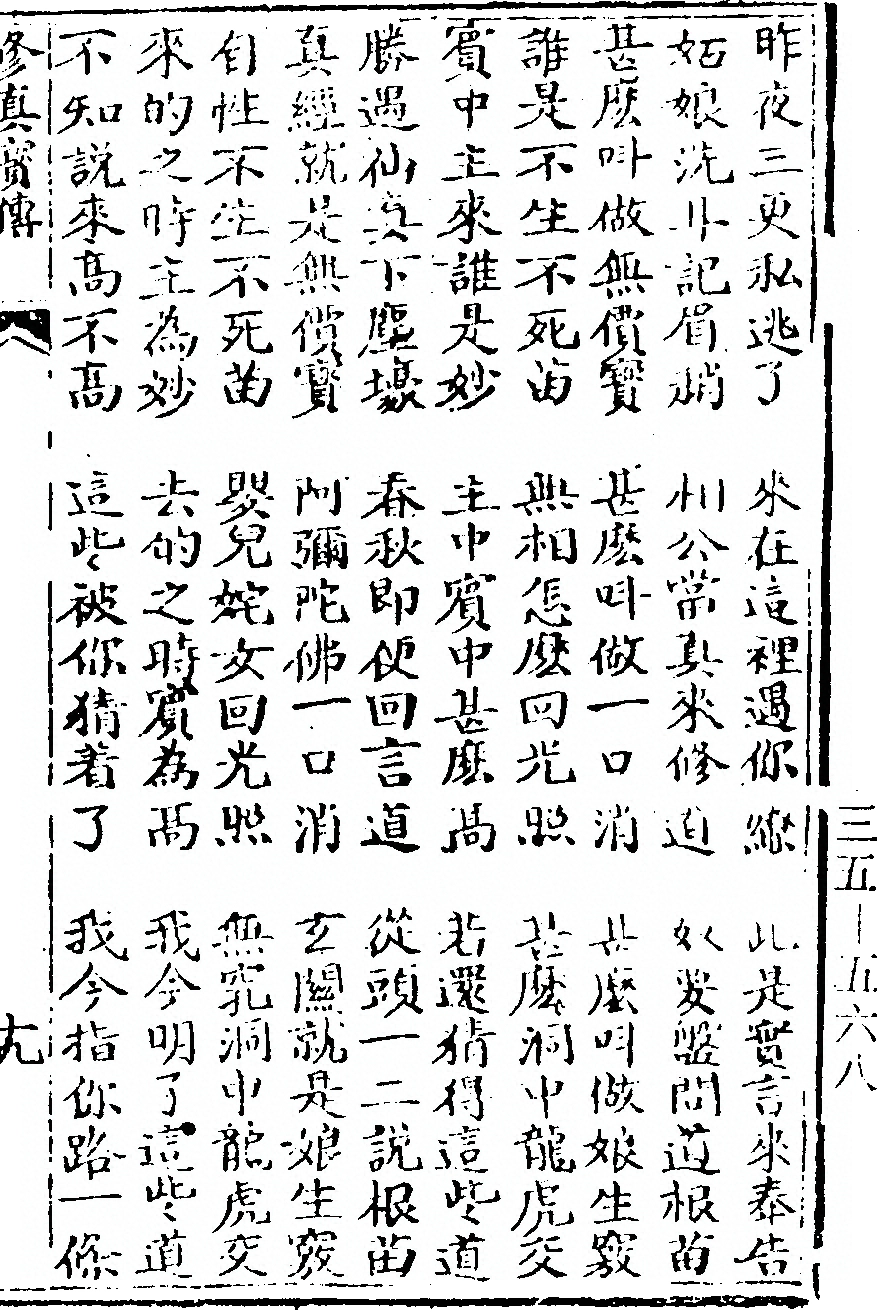 昨夜三更私逃了　來在這裡遇你纔　此是實言來奉告
姑娘洗卦記眉稍　州公當真來修道　奴要盤問道根苗
甚麽呌做無價寶　甚麽呌做一口消　甚麽呌做娘生竅
誰是不生不死苗　無相怎麽回光照　甚麽洞中龍虎交
賓中主來誰是妙　主中賓中甚麽高　若還猜得這些道
勝遇仙真下塵壕　春秋即便回言道　從頭一二說根苗
真經就是無價寶　阿彌陀佛一口消　玄關就是娘生竅
自性不生不死苗　嬰兒姹女回光照　無穵洞中龍虎交
來的之時主為妙　去的之時賓為高　我今明了這些道
不知說來高不高　這些被你猜着了　我今指你路一條
修真寶傳　八　十九
三五—五六八